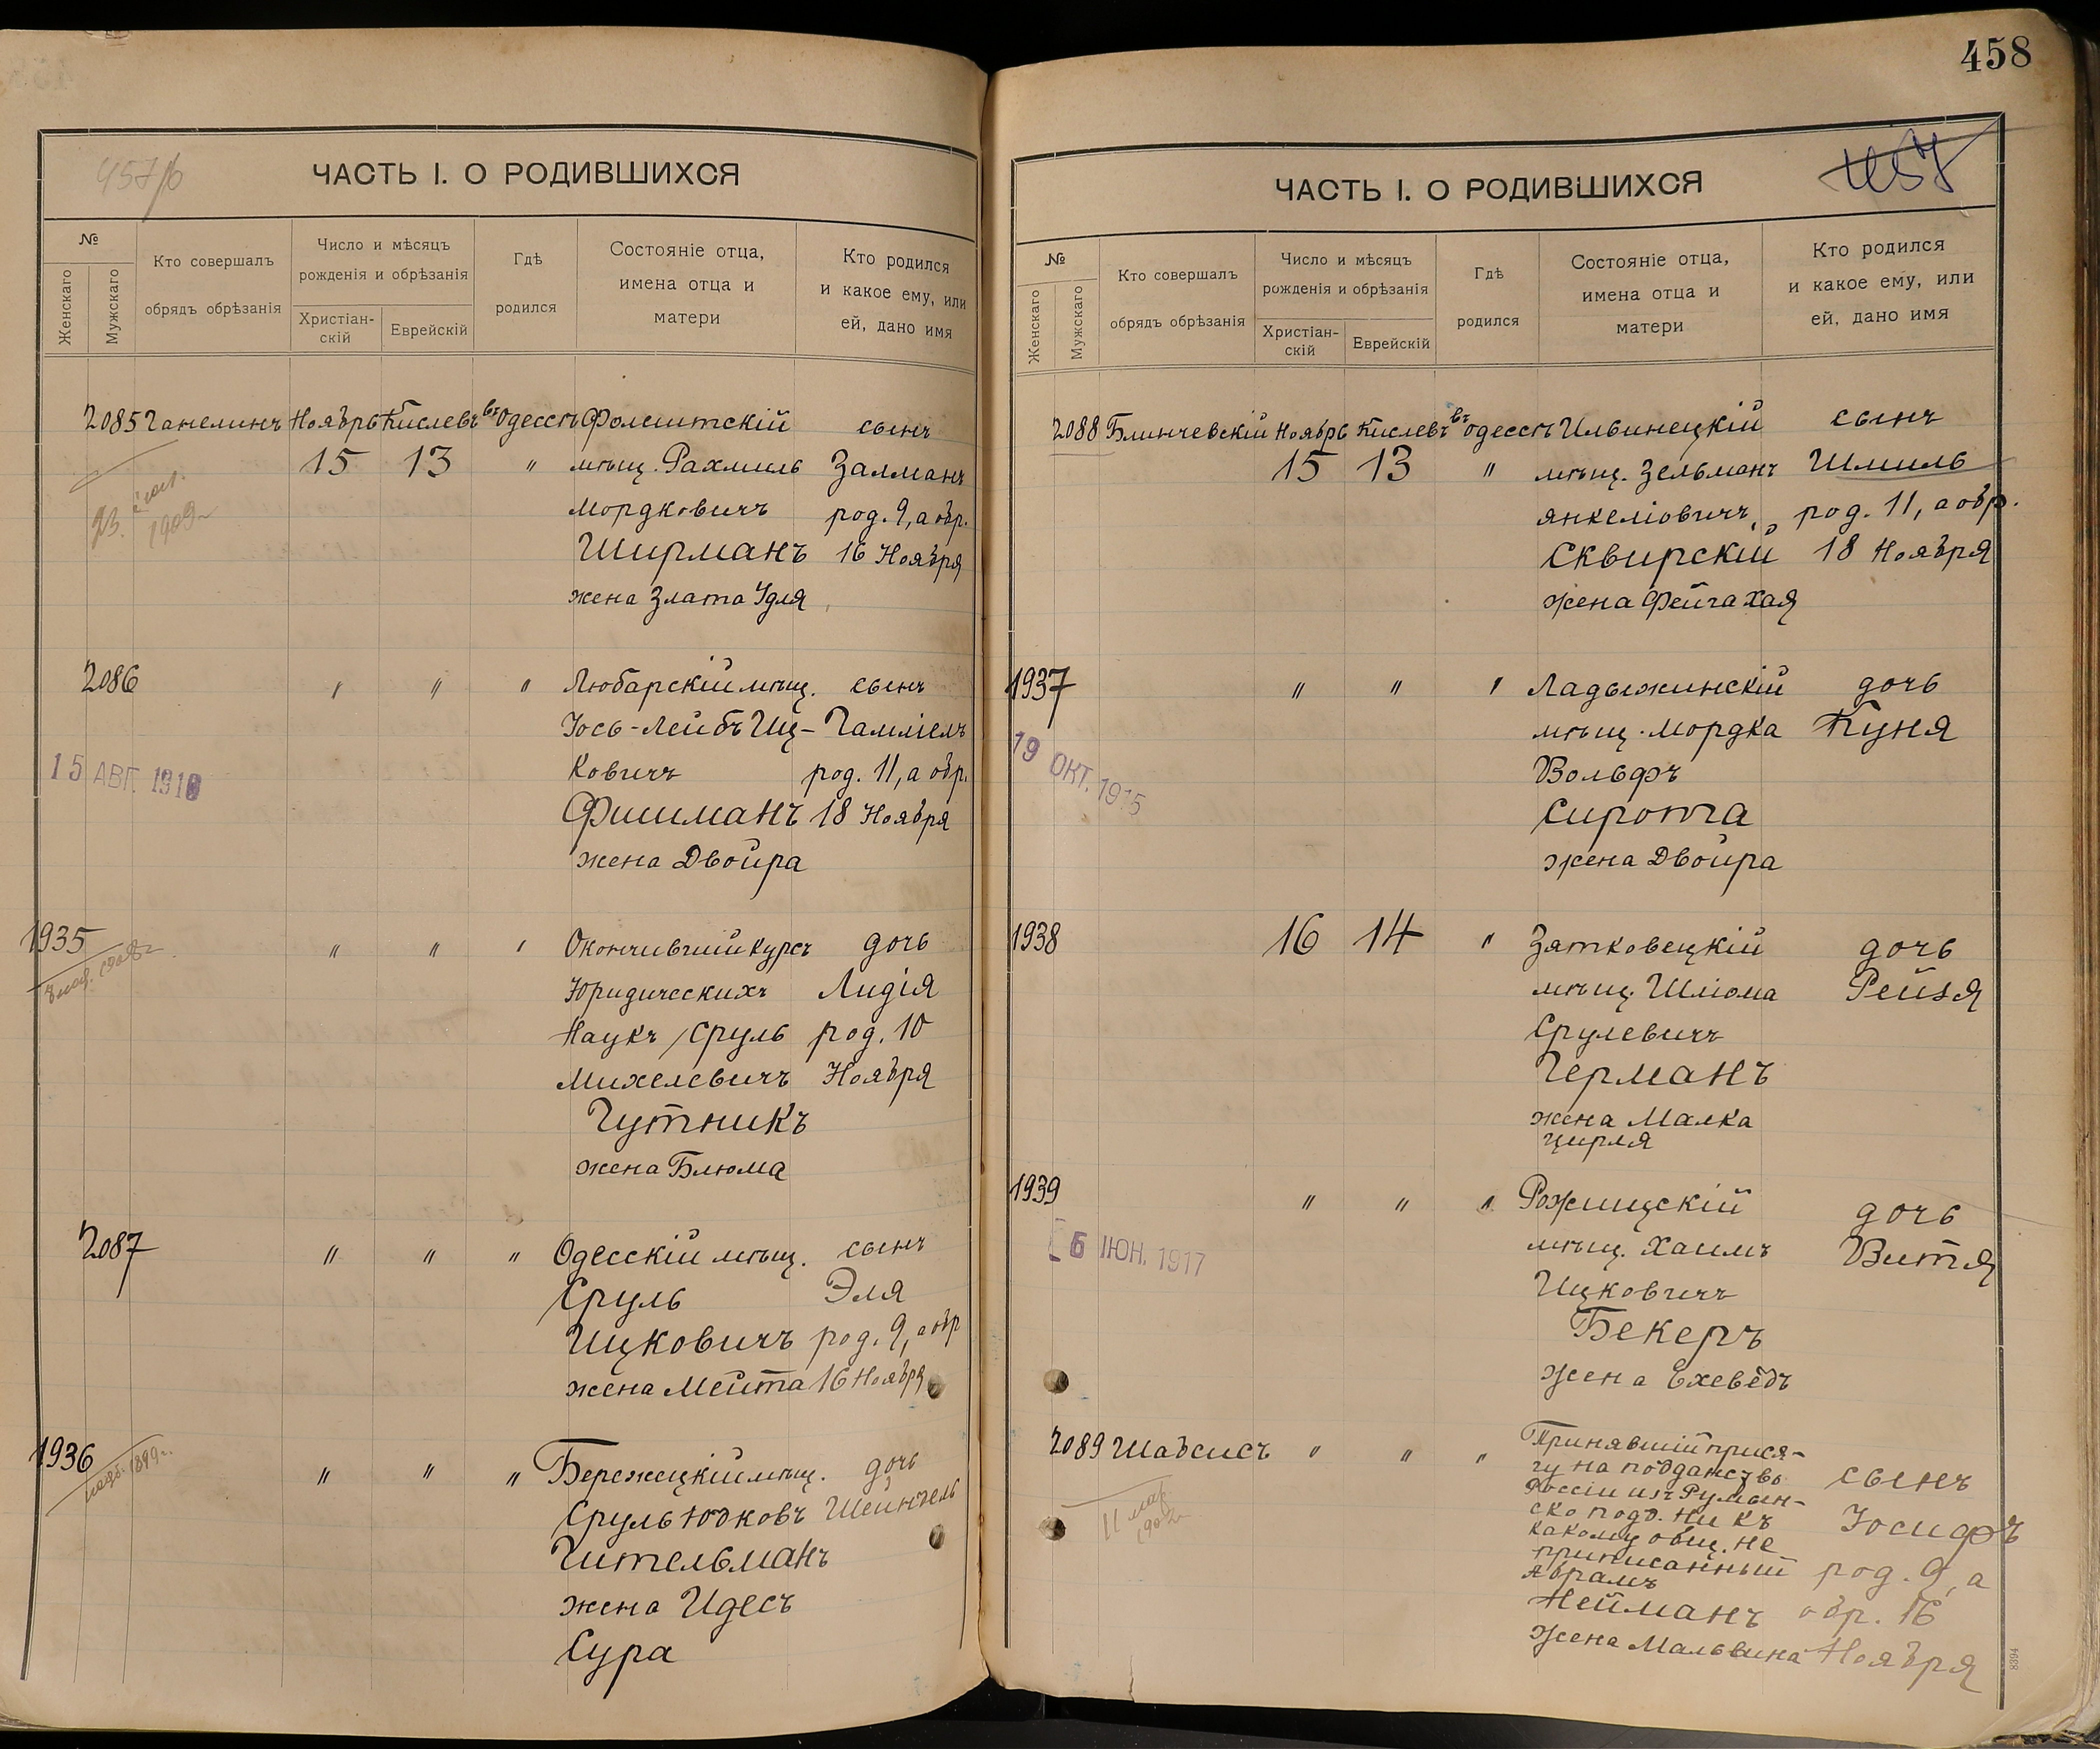 458
457/б
ЧАСТЬ I. О РОДИВШИХСЯ
№
Женскаго
Мужскаго
Кто совершалъ
обрядъ обрѣзанія
Число и мѣсяцъ
рожденія и обрѣзанія
Христіан-
скій
Еврейскій
Гдѣ
родился
Состояніе отца,
имена отца и
матери
Кто родился
и какое ему, или
ей, дано имя
2085 Ганелинъ Ноябрь Кислевъ въ Одессѣ Фолештскій сынъ
15 13 " мѣщ. Рахмиль Залманъ
1909г
Мордковичъ род. 9, а обр.
Ширманъ 16 Ноября
жена Злата Удля
2086 " " " Любарскій мѣщ. сынъ
Іось-Лейбъ Иц- Гамліелъ
15 АВГ. 1910
ковичъ род. 11, а обр.
Фишманъ 18 Ноября
жена Двойра
1935 " " " Окончившій курсъ дочь
1908г.
Юридическихъ Лидія
Наукъ Сруль род. 10
Михелевичъ Ноября
Гутникъ
жена Блюма
2087 " " " Одесскій мѣщ. сынъ
Сруль Эля
Ицковичъ род. 9, а обр
жена Мейта 16 Ноября
1936 " " " Бережецкій мѣщ. дочь
1899г.
Сруль Юдковъ Шейндель
Гительманъ
жена Идесъ
Сура
ЧАСТЬ I. О РОДИВШИХСЯ
457
№
Женскаго
Мужскаго
Кто совершалъ
обрядъ обрѣзанія
Число и мѣсяцъ
рожденія и обрѣзанія
Христіан-
скій
Еврейскій
Гдѣ
родился
Состояніе отца,
имена отца и
матери
Кто родился
и какое ему, или
ей, дано имя
2088 Блинчевскій Ноябрь Кислевъ въ Одессѣ Ильинецкій сынъ
15 13 " мѣщ. Зельманъ Шмиль
Янкеліовичъ род. 11, а обр.
Сквирскій 18 Ноября
жена Фейга Хая
1937 " " " Ладыжинскій дочь
мѣщ. Мордка Куня
19 ОКТ. 1915
Вольфъ
Сирота
жена Двойра
1938 16 14 " Зятковецкій дочь
мѣщ. Шліома Рейзя
Срулевичъ
Германъ
жена Малка
Цирля
1939 " " " Рожищскій дочь
6 ІЮН. 1917
мѣщ. Хаимъ Витя
Ицковичъ
Бекеръ
жена Ехеведъ
2089 Шабсисъ " " " Принявшій прися-
гу на подданство сынъ
Россіи изъ Румын-
ско подд. ни къ Іосифъ
какому общ. не
приписанный род. 9, а
11 мар. 1902г
Абрамъ
Нейманъ обр. 16
жена Мальвина Ноября
8394